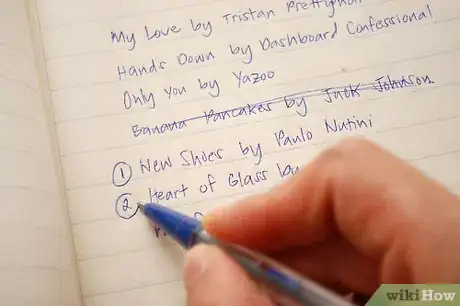 My Love by Tristan Prettyman
Hands Down by Dashboard Confessional
Only You by Yazoo
Banana Pancakes by Jack Johnson.
① New Shoes by Paulo Nutini
② Heart of Glass by
wikiHow